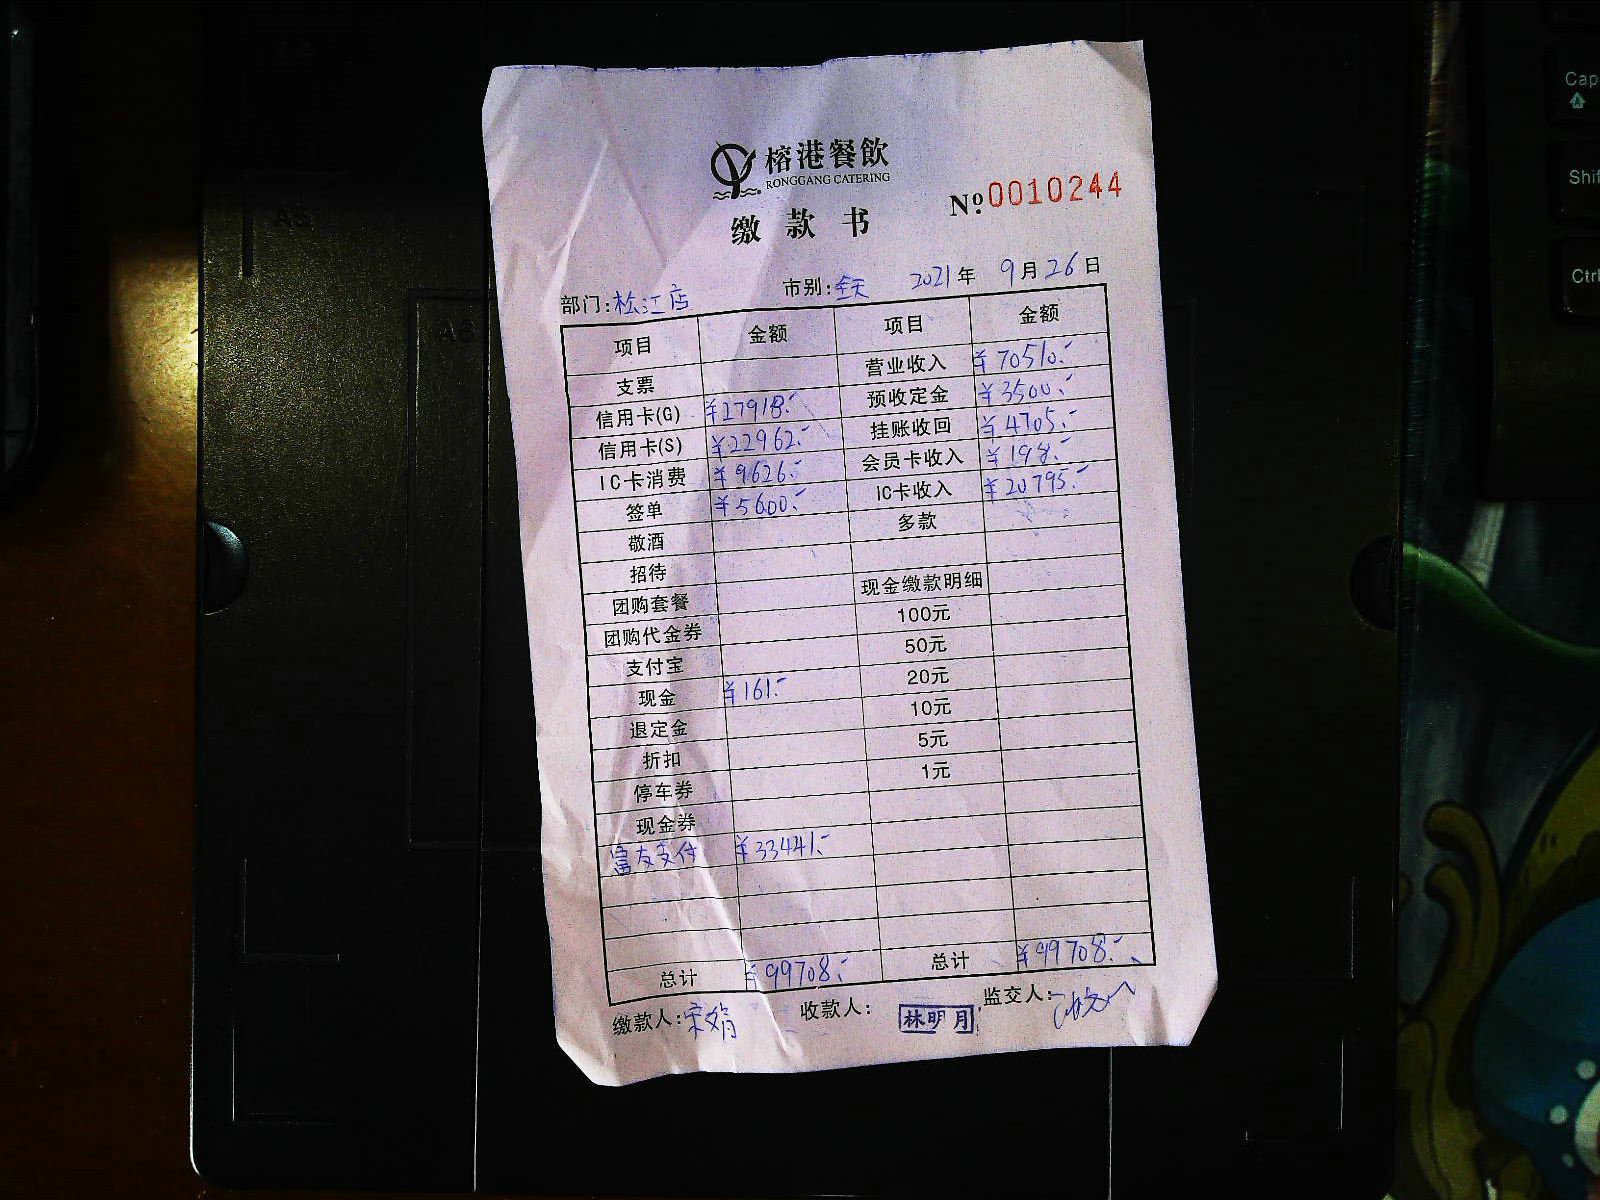 榕港餐飲
RONGGANG CATERING
缴款书 №0010244
部门:松江店 市别:全天 2021年 9月26日
项目 金额 项目 金额
支票 营业收入 ¥70510.-
信用卡(G) ¥27918.- 预收定金 ¥3500.-
信用卡(S) ¥22962.- 挂账收回 ¥4705.-
IC卡消费 ¥9626.- 会员卡收入 ¥198.-
签单 ¥5600.- IC卡收入 ¥20795.-
敬酒 多款
招待
团购套餐 现金缴款明细
团购代金券 100元
支付宝 50元
现金 ¥161.- 20元
退定金 10元
折扣 5元
停车券 1元
现金券
富友支付 ¥33441.-
总计 ¥99708.- 总计 ¥99708.-
缴款人:宋娟 收款人: 林明月 监交人:
A5
A6
Cap
Shif
Ctrl